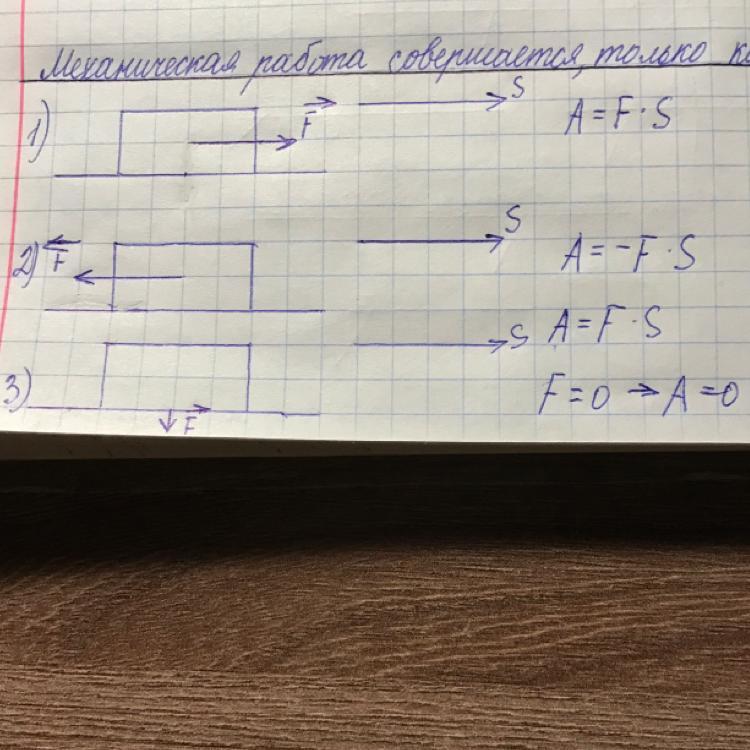 Механическая работа совершается, только
1) F S A = F · S
2) F S A = -F · S
S A = F · S
3) F F = 0 → A = 0